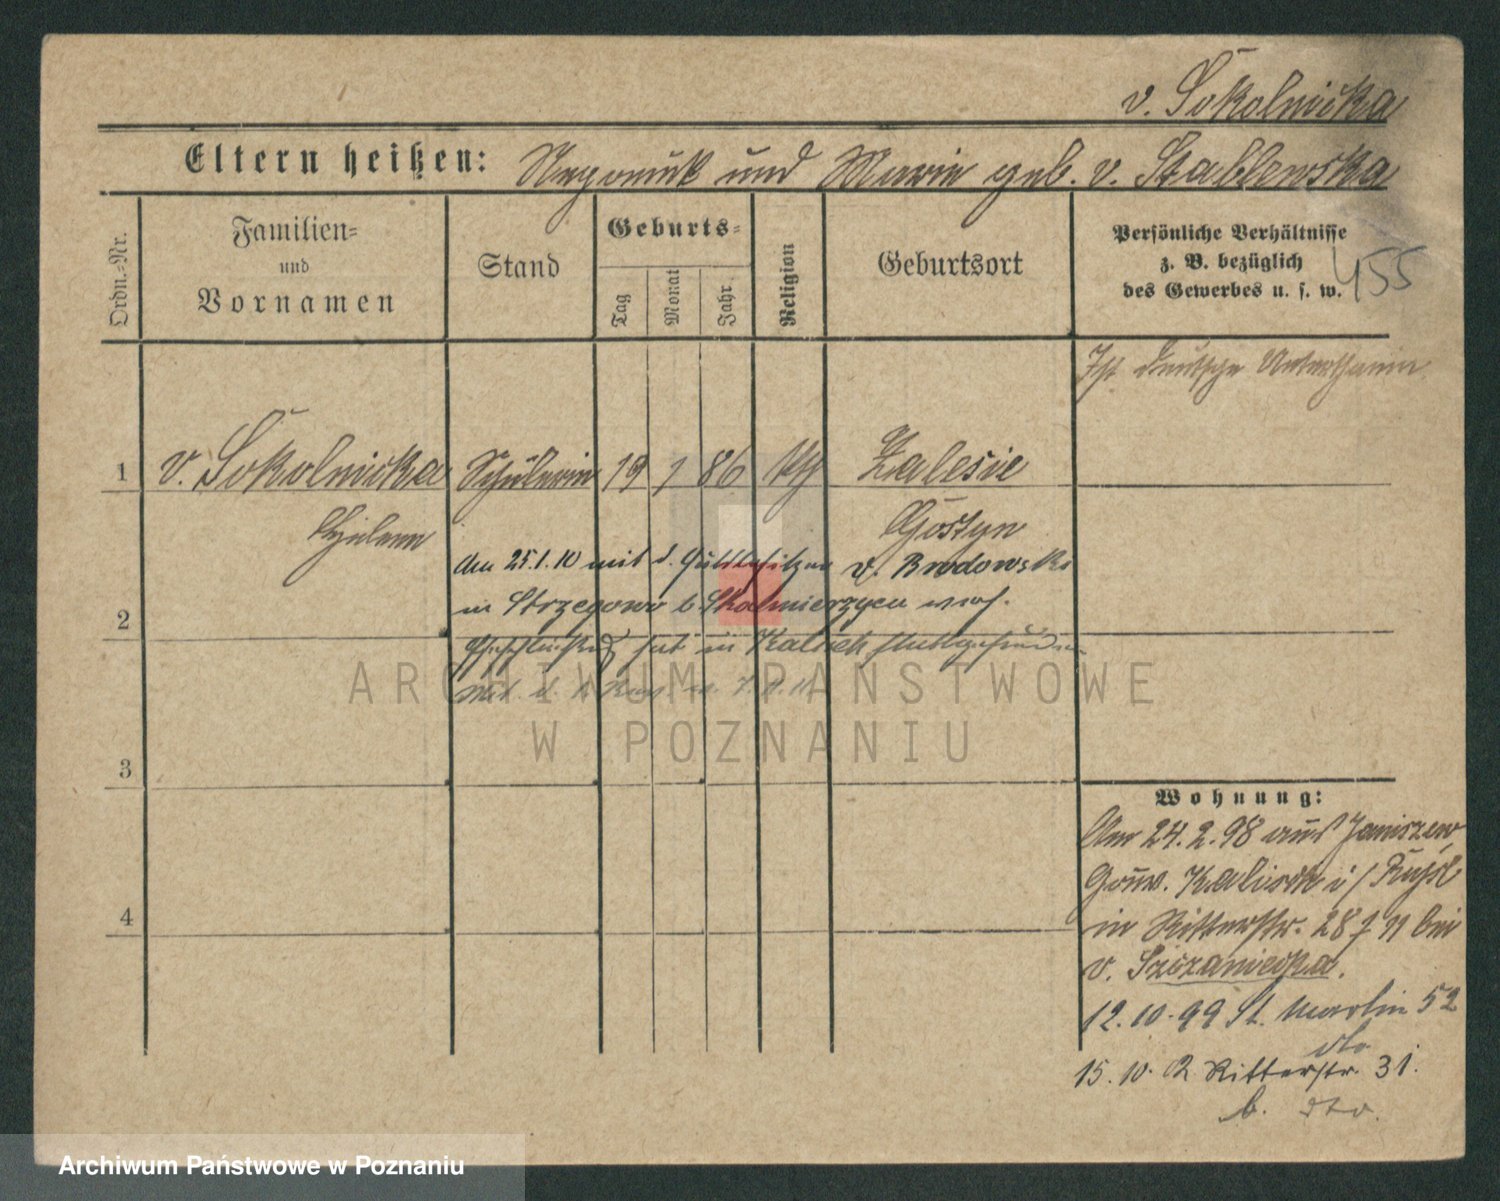 v. Sokolnicka
Eltern heißen: Nepomuk und Marie geb. v. Stablewska
Ordn.-Nr.
Familien-
und
Vornamen
Stand
Geburts-
Tag
Monat
Jahr
Religion
Geburtsort
Persönliche Verhältnisse
z. B. bezüglich
des Gewerbes u. s. w.
455
Ist deutsche Unterthanin
1
v. Sokolnicka
Schülerin
19
1
86
kth
Zalesie
Helene
Gostyn
am 25.1.10 mit d. Gutsbesitzer v. Brodowski
in Strzegowo b Skalmierzyce verh.
2
Eheschließung hat in Kalisch stattgefunden
3
Wohnung:
Am 24.2.98 aus Janiszew
Gouv. Kalisch i/Rußl
in Ritterstr. 28 bei
v. Szczaniecka.
4
12.10.99 St. Martin 52
dto
15.10. 2 Ritterstr. 31.
b. dto.
ARCHIWUM PAŃSTWOWE
W POZNANIU
Archiwum Państwowe w Poznaniu